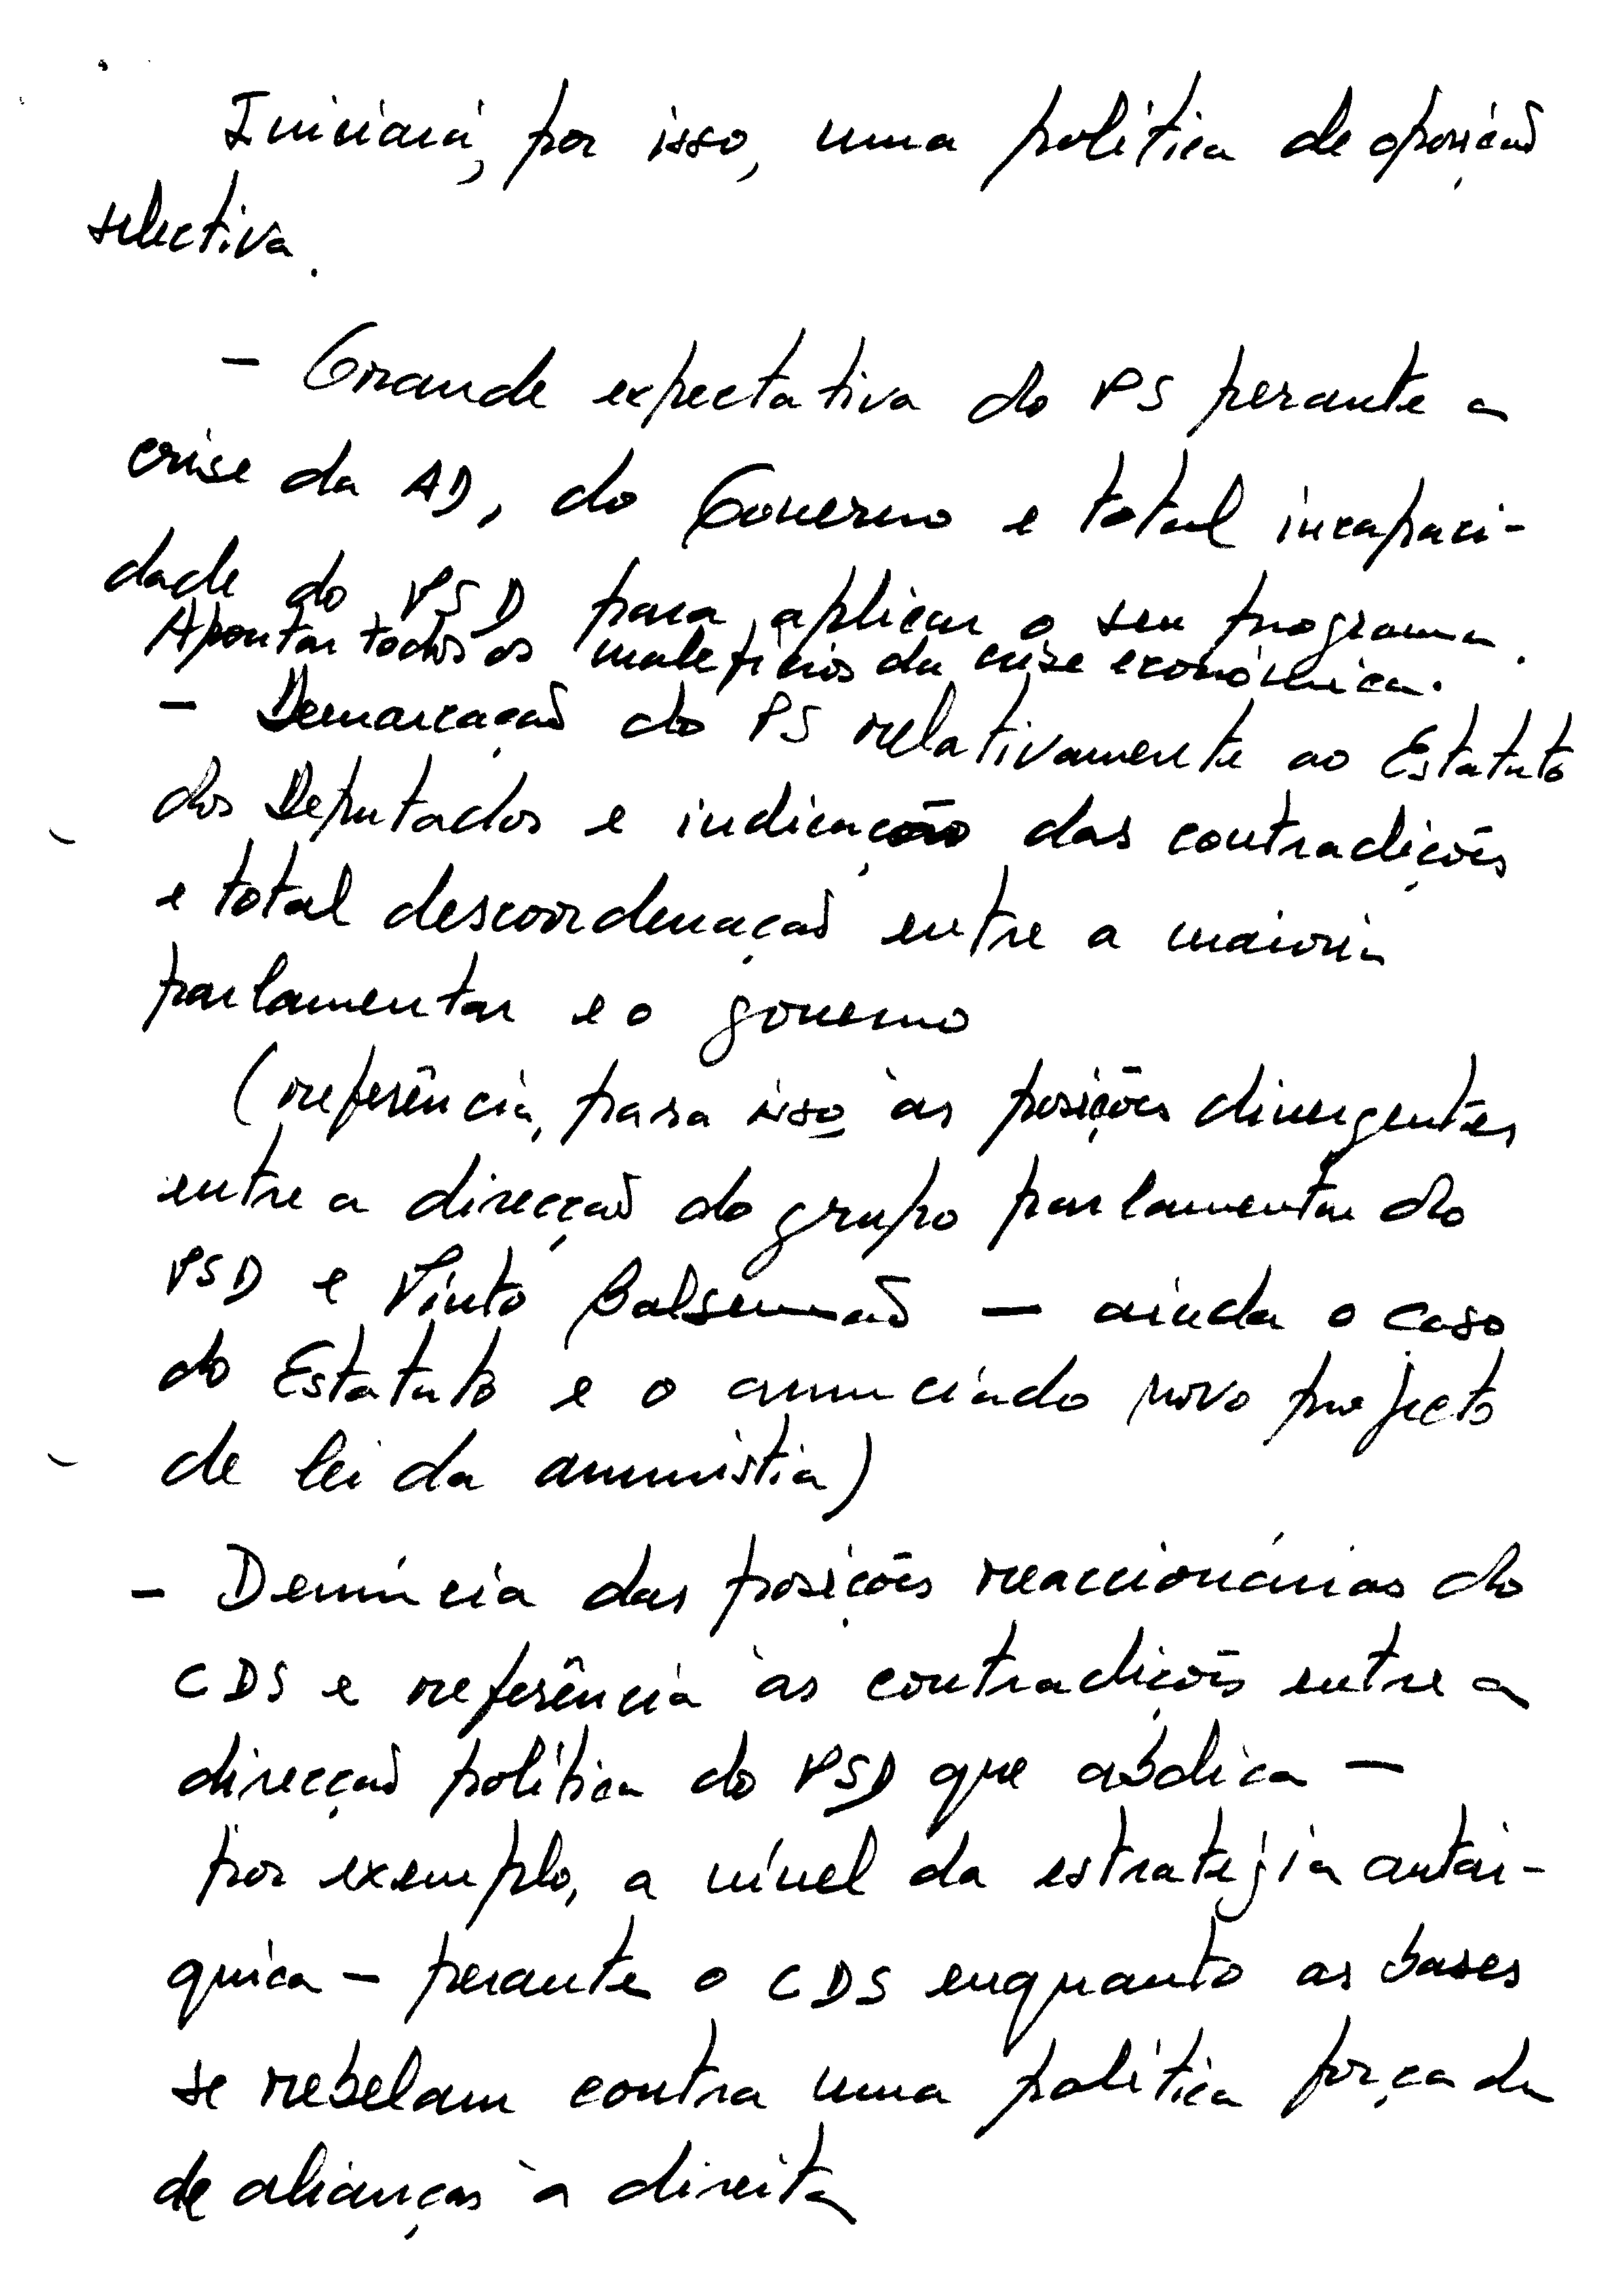 Iniciará, por isso, uma política de oposição
selectiva.
- Grande expectativa do PS perante a
crise da AD, do Governo e total incapaci-
dade do PSD para aplicar o seu programa.
Apontar todos os malefícios da crise económica.
- Demarcação do PS relativamente ao Estatuto
dos Deputados e indicação das contradições
e total descoordenação entre a maioria
parlamentar e o governo
(referência, para isso às posições divergentes
entre a direcção do grupo parlamentar do
PSD e Pinto Balsemão — ainda o caso
do Estatuto e o anunciado novo projecto
de lei da amnistia)
- Denúncia das posições reaccionárias do
CDS e referência às contradições entre a
direcção política do PSD que abdica —
por exemplo, a nível da estratégia autár-
quica — perante o CDS enquanto as bases
se rebelam contra uma política forçada
de alianças à direita